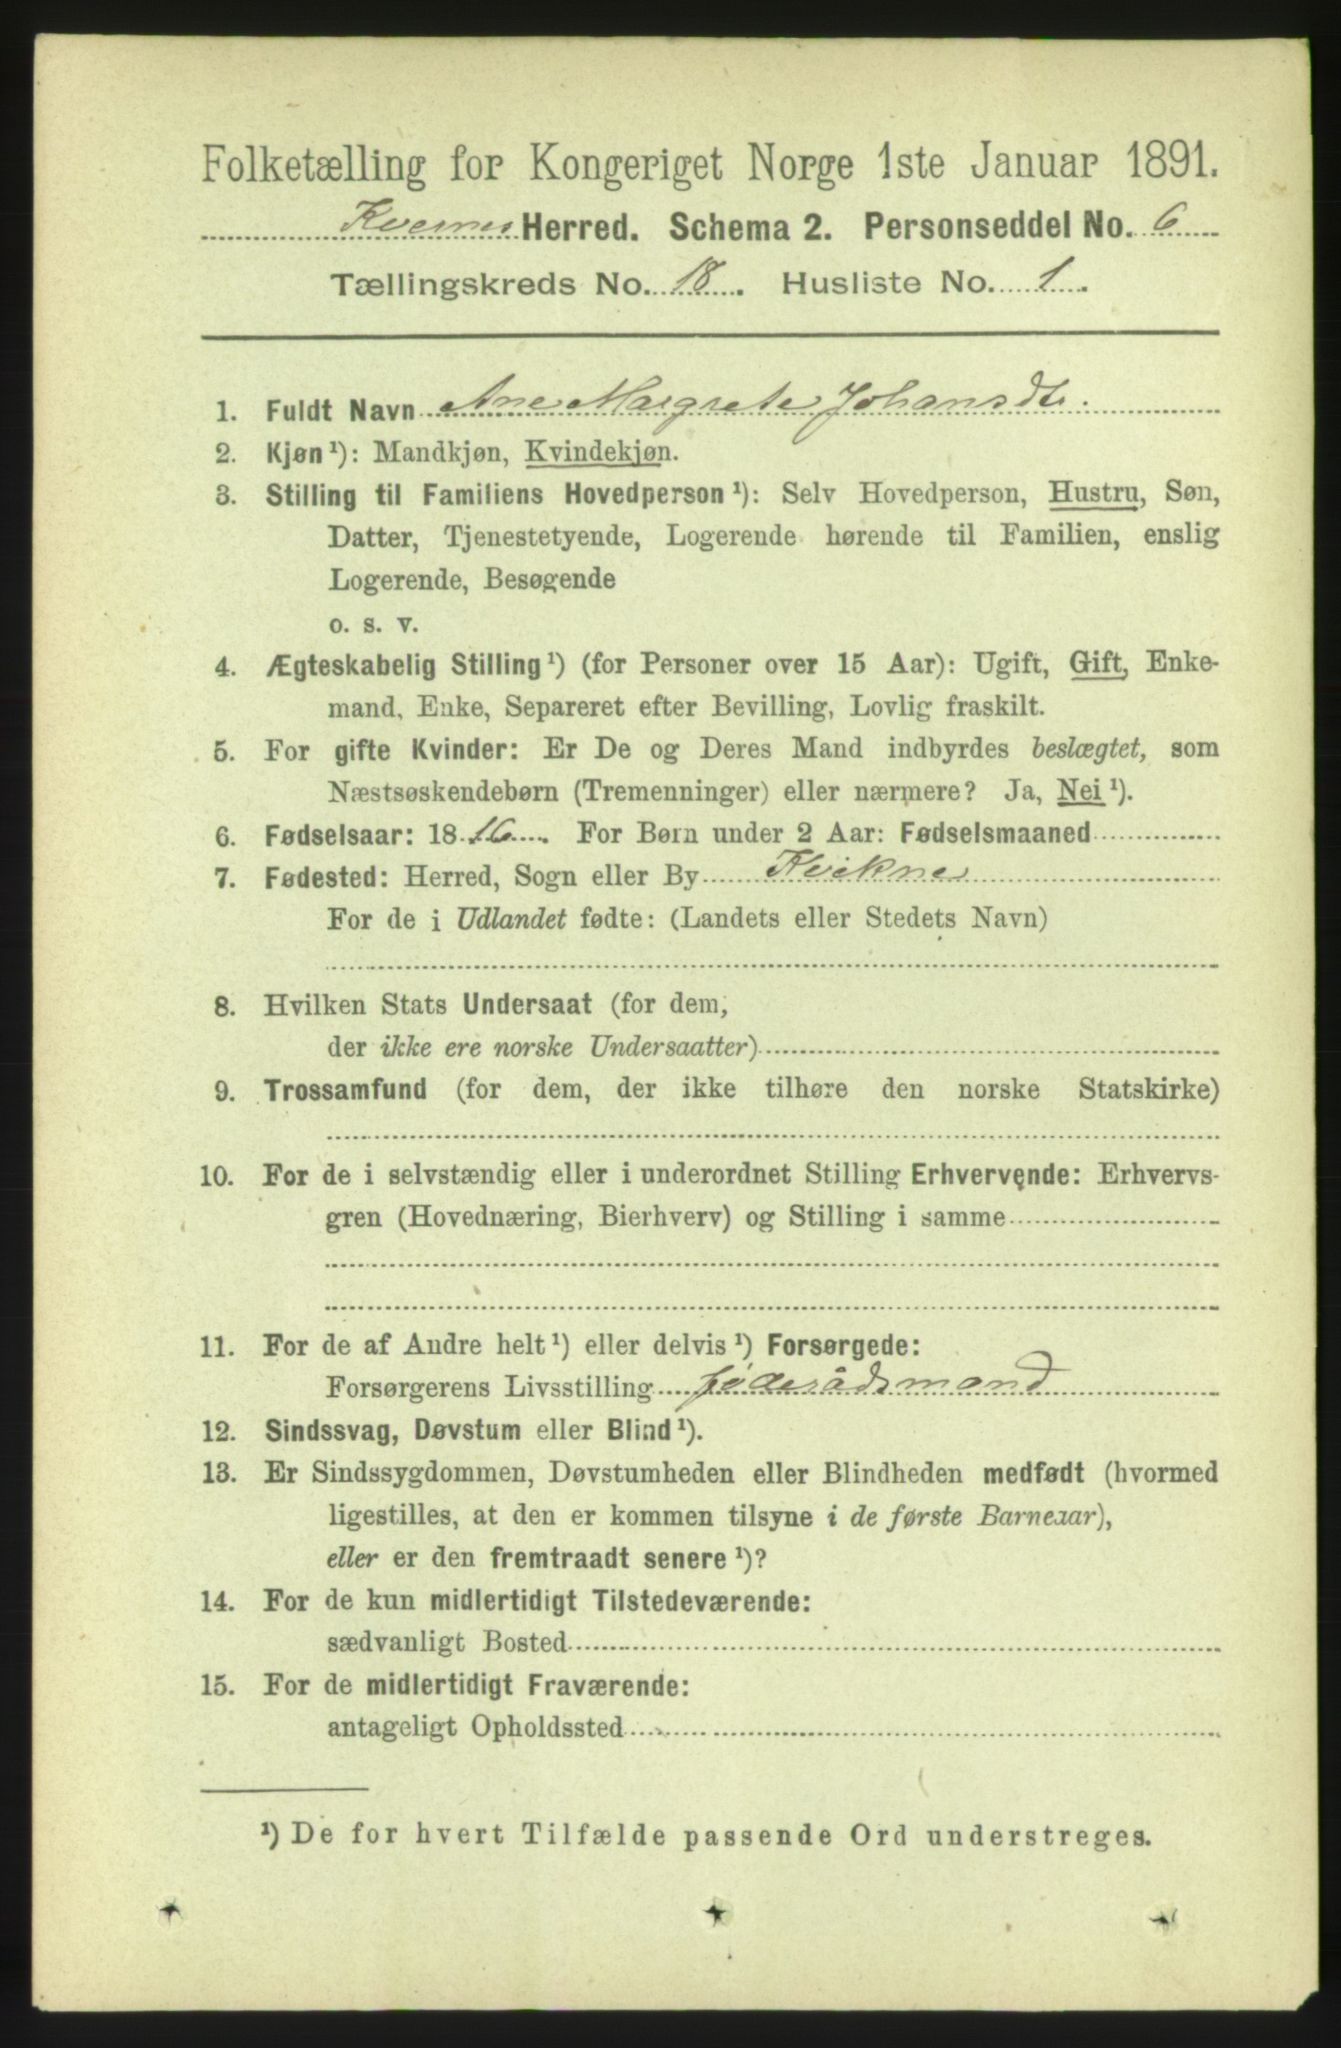 Folketælling for Kongeriget Norge 1ste Januar 1891.
Kvernes Herred. Schema 2. Personseddel No. 6
Tællingskreds No. 18. Husliste No. 1.
1. Fuldt Navn Ane Margrete Johansdtr.
2. Kjøn ¹): Mandkjøn, Kvindekjøn.
3. Stilling til Familiens Hovedperson ¹): Selv Hovedperson, Hustru, Søn,
Datter, Tjenestetyende, Logerende hørende til Familien, enslig
Logerende, Besøgende
o. s. v.
4. Ægteskabelig Stilling ¹) (for Personer over 15 Aar): Ugift, Gift, Enke-
mand, Enke, Separeret efter Bevilling, Lovlig fraskilt.
5. For gifte Kvinder: Er De og Deres Mand indbyrdes beslægtet, som
Næstsøskendebørn (Tremenninger) eller nærmere? Ja, Nei ¹).
6. Fødselsaar: 1816. For Børn under 2 Aar: Fødselsmaaned
7. Fødested: Herred, Sogn eller By Kvikne
For de i Udlandet fødte: (Landets eller Stedets Navn)
8. Hvilken Stats Undersaat (for dem,
der ikke ere norske Undersaatter)
9. Trossamfund (for dem, der ikke tilhøre den norske Statskirke)
10. For de i selvstændig eller i underordnet Stilling Erhvervende: Erhvervs-
gren (Hovednæring, Bierhverv) og Stilling i samme
11. For de af Andre helt ¹) eller delvis ¹) Forsørgede:
Forsørgerens Livsstilling föderådsmand
12. Sindssvag, Døvstum eller Blind ¹).
13. Er Sindssygdommen, Døvstumheden eller Blindheden medfødt (hvormed
ligestilles, at den er kommen tilsyne i de første Barneaar),
eller er den fremtraadt senere ¹)?
14. For de kun midlertidigt Tilstedeværende:
sædvanligt Bosted
15. For de midlertidigt Fraværende:
antageligt Opholdssted
¹) De for hvert Tilfælde passende Ord understreges.